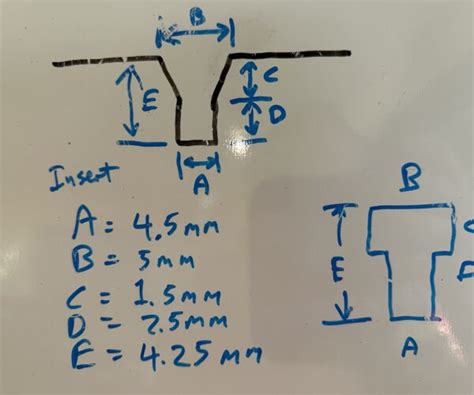 B
E
C
D
A
Insert
A = 4.5mm
B = 5mm
C = 1.5mm
D = 2.5mm
E = 4.25mm
B
C
E
A